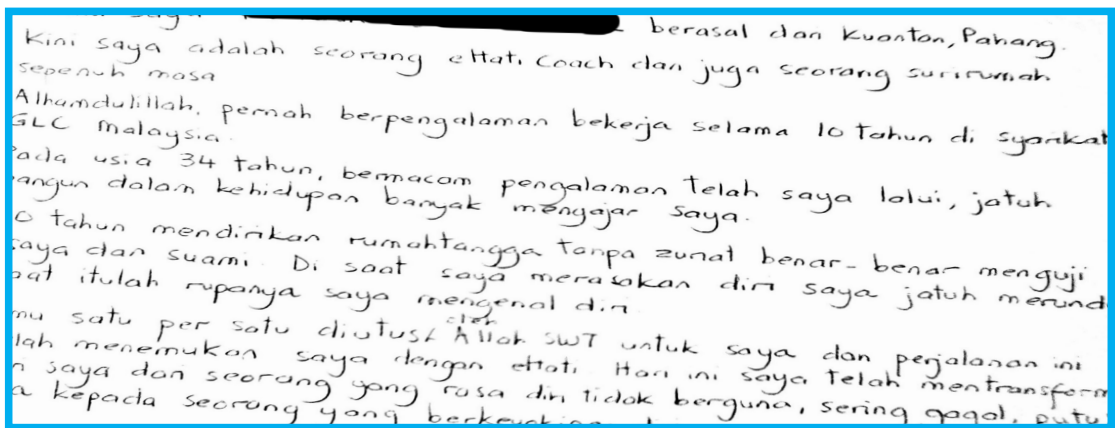 saya berasal dari Kuantan, Pahang.
Kini saya adalah seorang eHati Coach dan juga seorang surirumah
sepenuh masa
Alhamdulillah, pernah berpengalaman bekerja selama 10 tahun di syarikat
GLC Malaysia.
Pada usia 34 tahun, bermacam pengalaman telah saya lalui, jatuh
bangun dalam kehidupan banyak mengajar saya.
0 tahun mendirikan rumahtangga tanpa zuriat benar-benar menguji
saya dan suami. Di saat saya merasakan diri saya jatuh merund
itulah rupanya saya mengenal diri
mu satu per satu diutus oleh Allah SWT untuk saya dan perjalanan ini
lah menemukan saya dengan eHati. Hari ini saya telah mentransform
n saya dari seorang yang rasa diri tidak berguna, sering gagal, putu
a kepada seorang yang